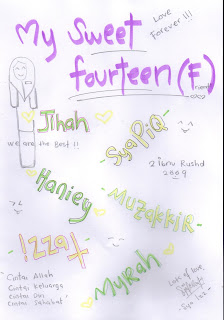 My Sweet
fourteen (F)
Love
Forever !!!
Jihah
we are the Best !!
SyaPiQ
2 Ibnu Rushd
2009
Haniey
MUZAKKIR
Izzati
MyRah
Cintai Allah
Cintai Keluarga
Cintai Diri
Cintai Sahabat
Lots of love